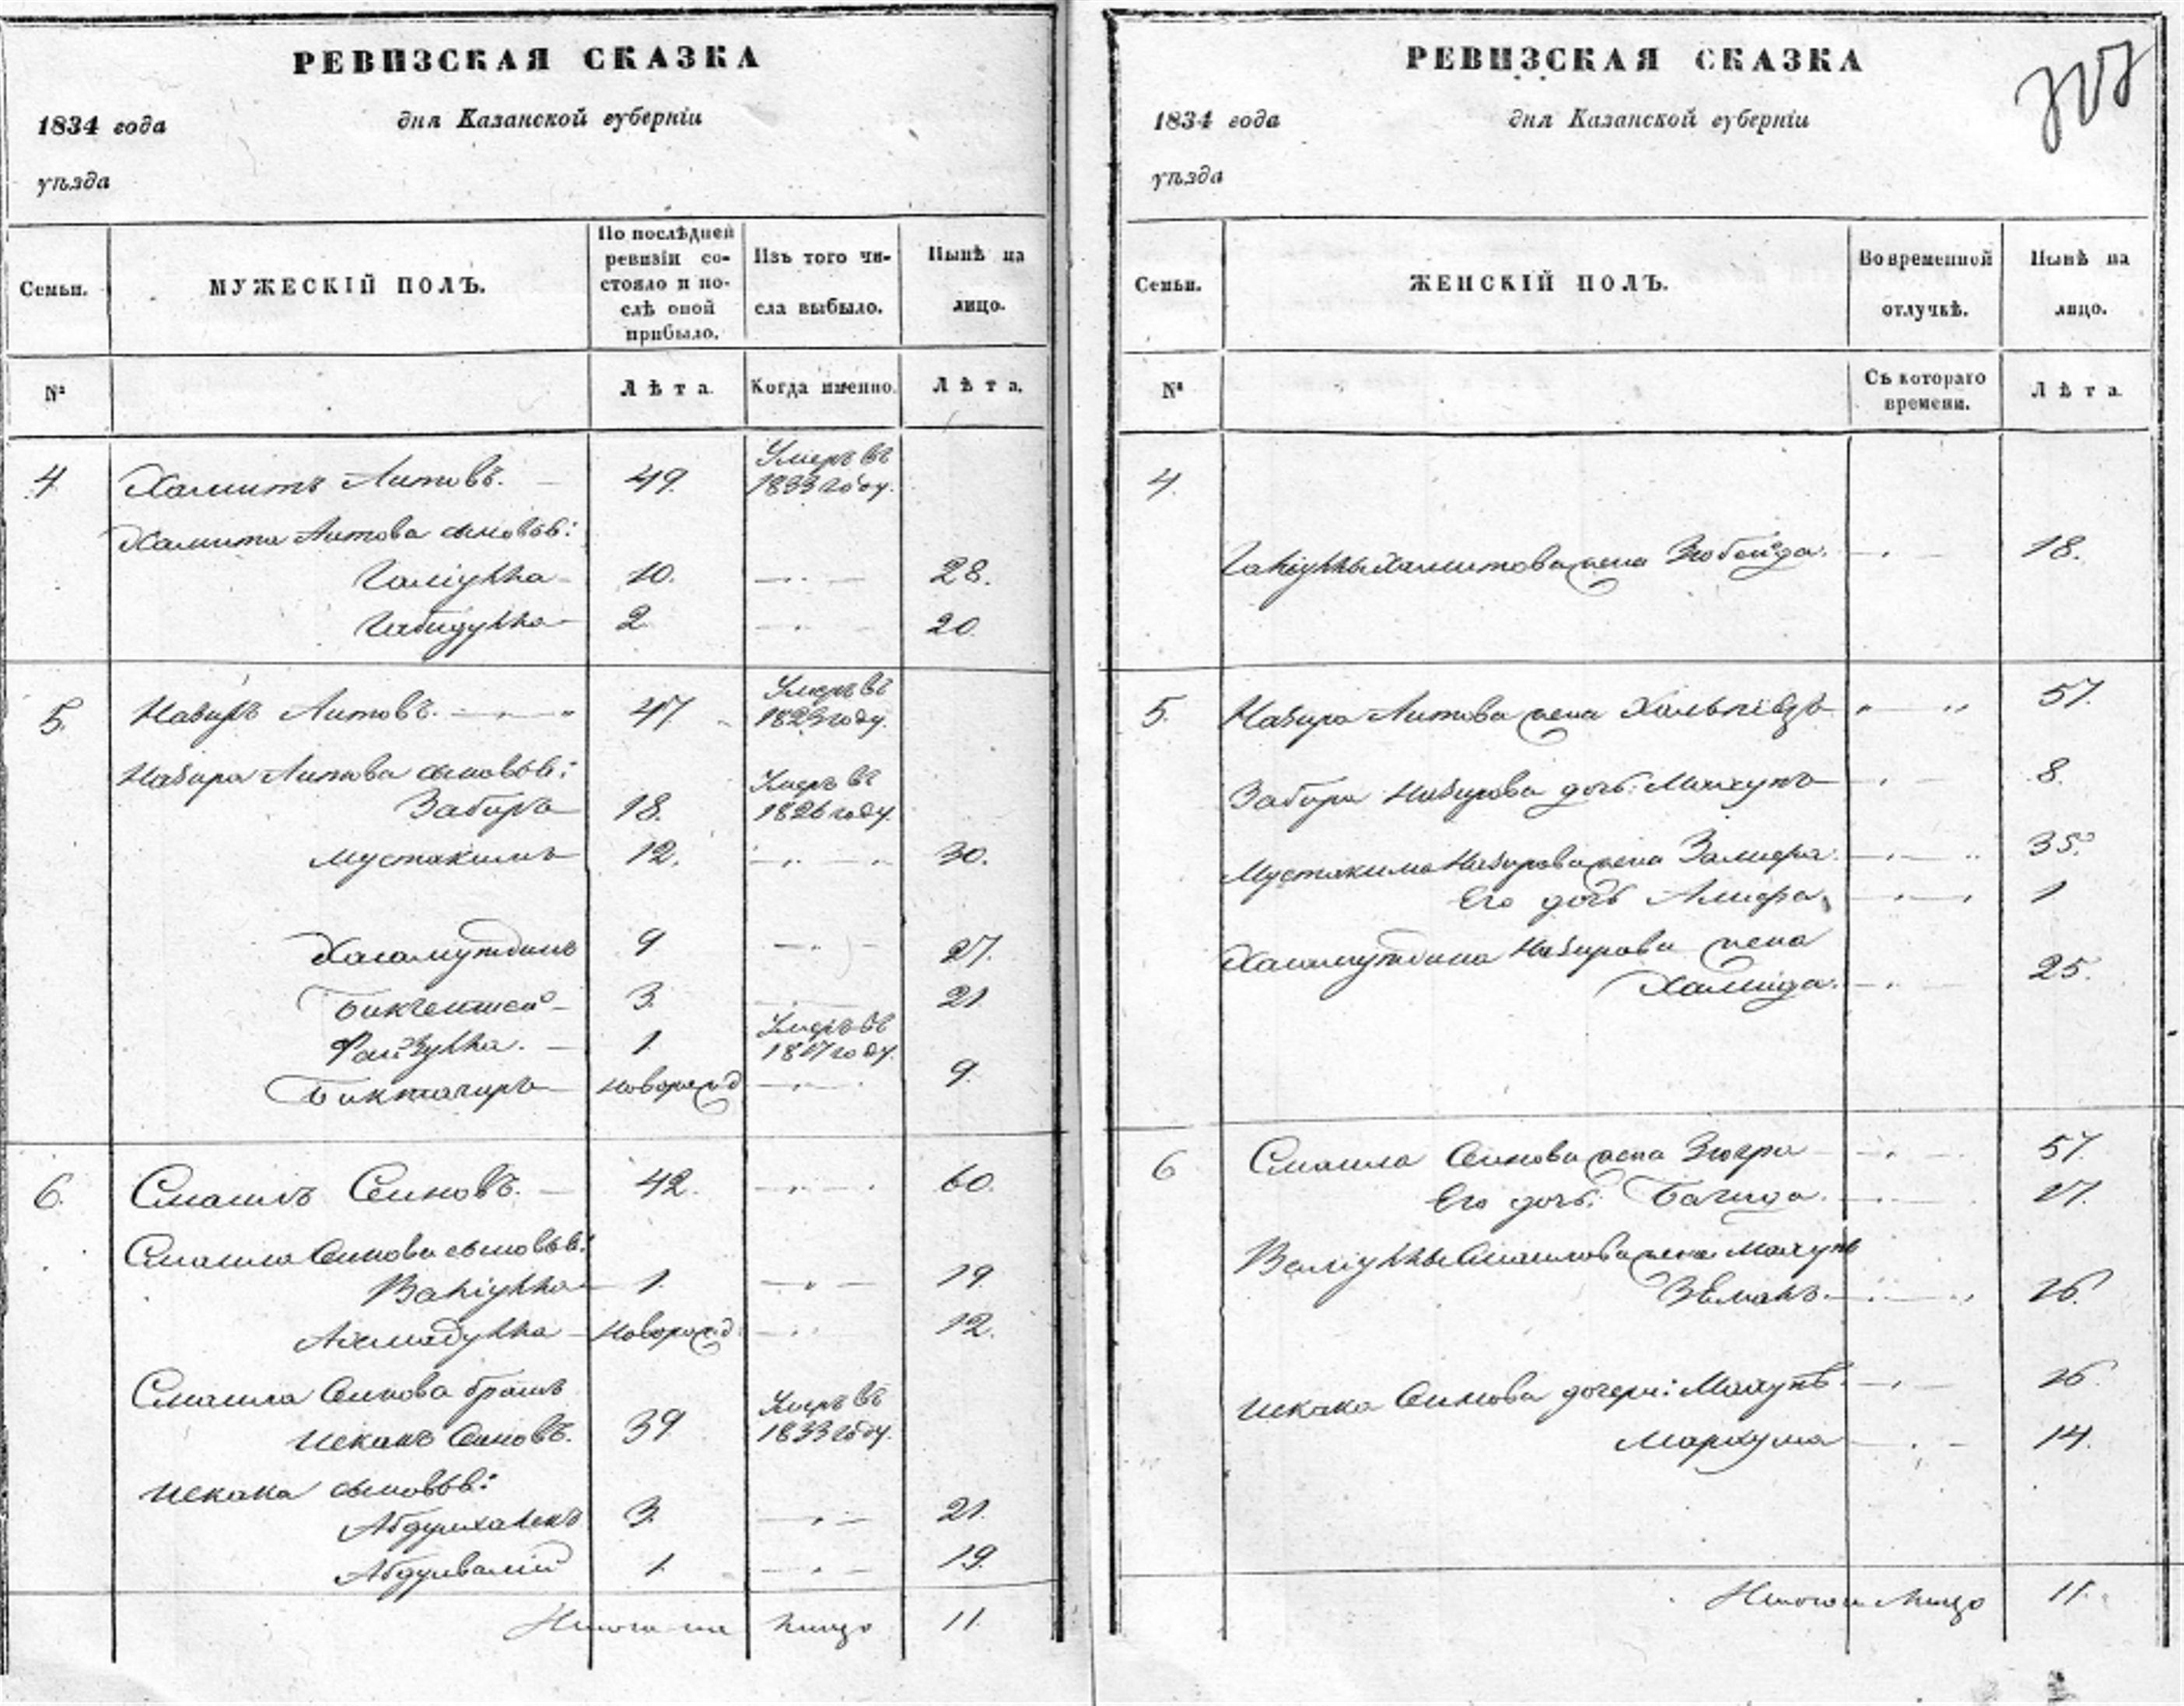 РЕВИЗСКАЯ СКАЗКА
1834 года дня Казанской губерніи
уѣзда
Семьи.
МУЖЕСКІЙ ПОЛЪ.
По послѣдней ревизіи со-стояло и по-слѣ оной прибыло.
Изъ того чи-сла выбыло.
Нынѣ на лицо.
№
Лѣта.
Когда именно.
Лѣта.
4 Хамитъ Аитовъ. 49. Умеръ въ 1833 году.
Хамита Аитова сыновья:
Галіулла 10. 28.
Габидулла 2 20.
5. Назиръ Аитовъ. 47 Умеръ въ 1823 году.
Назира Аитова сыновья:
Забиръ 18. Умеръ въ 1826 году.
Мустакимъ 12. 30.
Хасамутдинъ 9 27.
Бикчентей 3. 21
Файзулла. 1. Умеръ въ 1817 году.
Биктагиръ новорожд 9.
6. Смаилъ Сеиновъ. 42. 60.
Смаила Сеинова сыновья:
Валіулла 1. 19.
Ахмадулла новорожд 12.
Смаила Сеинова братъ
Искакъ Сеиновъ. 39 Умеръ въ 1833 году.
Искака сыновья:
Абдулхалекъ 3. 21.
Абдулвалій 1. 19.
Итого на лицо 11.
РЕВИЗСКАЯ СКАЗКА
1834 года дня Казанской губерніи
уѣзда
Семьи.
ЖЕНСКІЙ ПОЛЪ.
Во временной отлучкѣ.
Нынѣ на лицо.
№
Съ котораго времени.
Лѣта.
4.
Галіуллы Хамитова жена Зюбейда. 18.
5. Назира Аитова жена 57.
Забира Назирова дочь: 8.
Мустакима Назирова жена Замифа. 35.
Его дочь 1
Хасамутдина Назирова жена
Халида. 25.
6 Смаила Сеинова жена Зюгра 57.
Его дочь: 17.
Валіуллы Смаилова жена
26.
Искака Сеинова дочери: 16.
Мархума 14.
Итого на лицо 11.